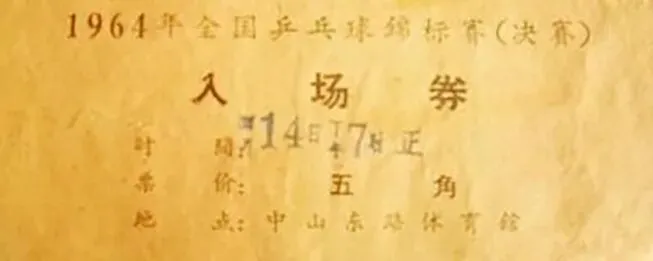 1964年全国乒乓球锦标赛(决赛)
入场券
时间:14日下午7时正
票价:五角
地点:中山东路体育馆